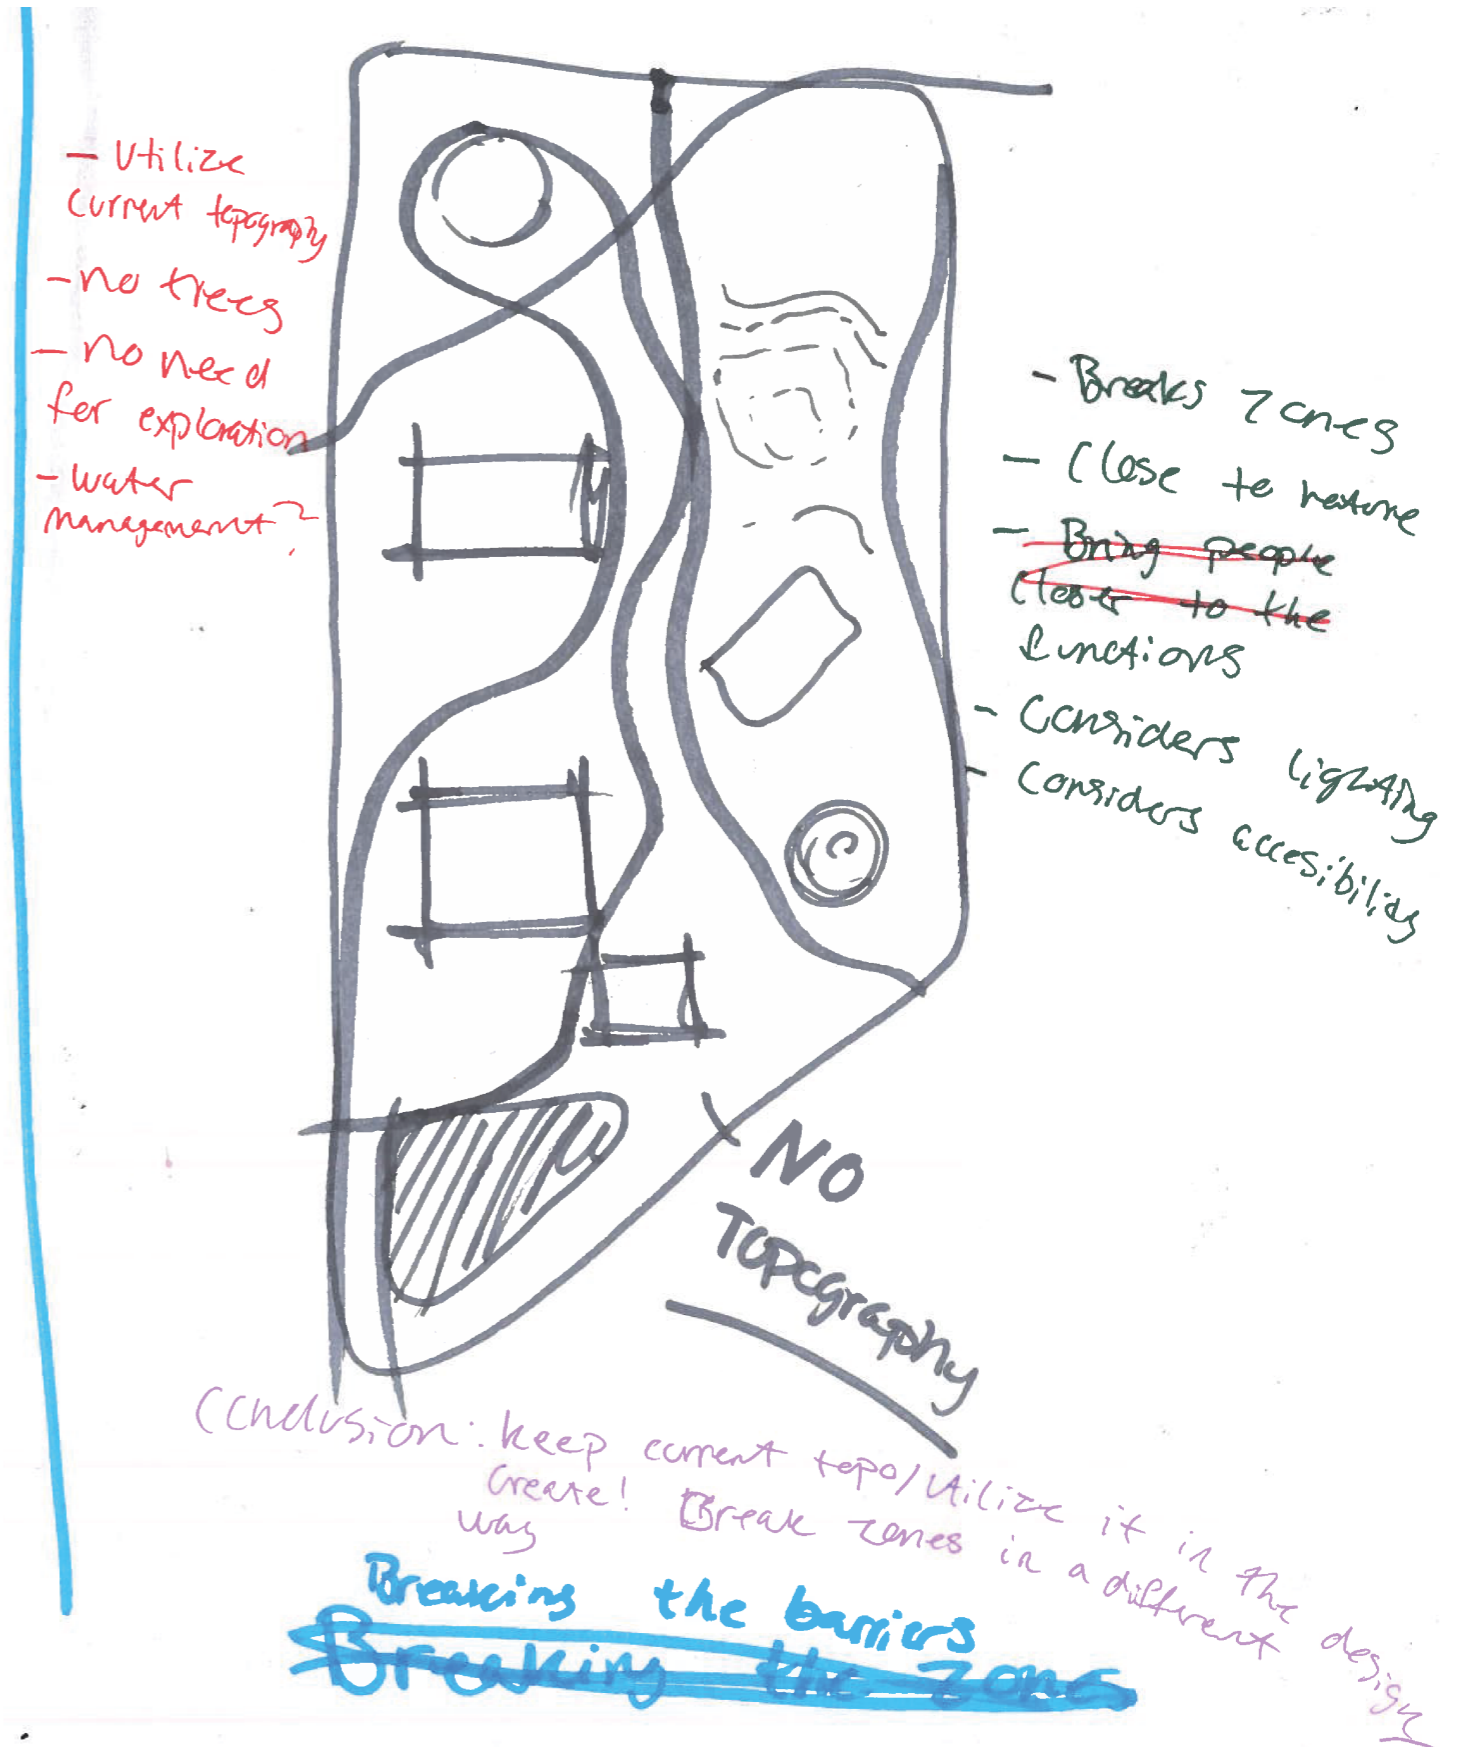 - Utilize
current topography
- no trees
- no need
for exploration
- water
management?
- Breaks zones
- Close to nature
- Bring people
closer to the
functions
- Considers lighting
- Considers accesibility
NO
TOPOGRAPHY
Conclusion: keep current topo/utilize it in the design
create! Break zones in a different
way
Breaking the barriers
Breaking the zone